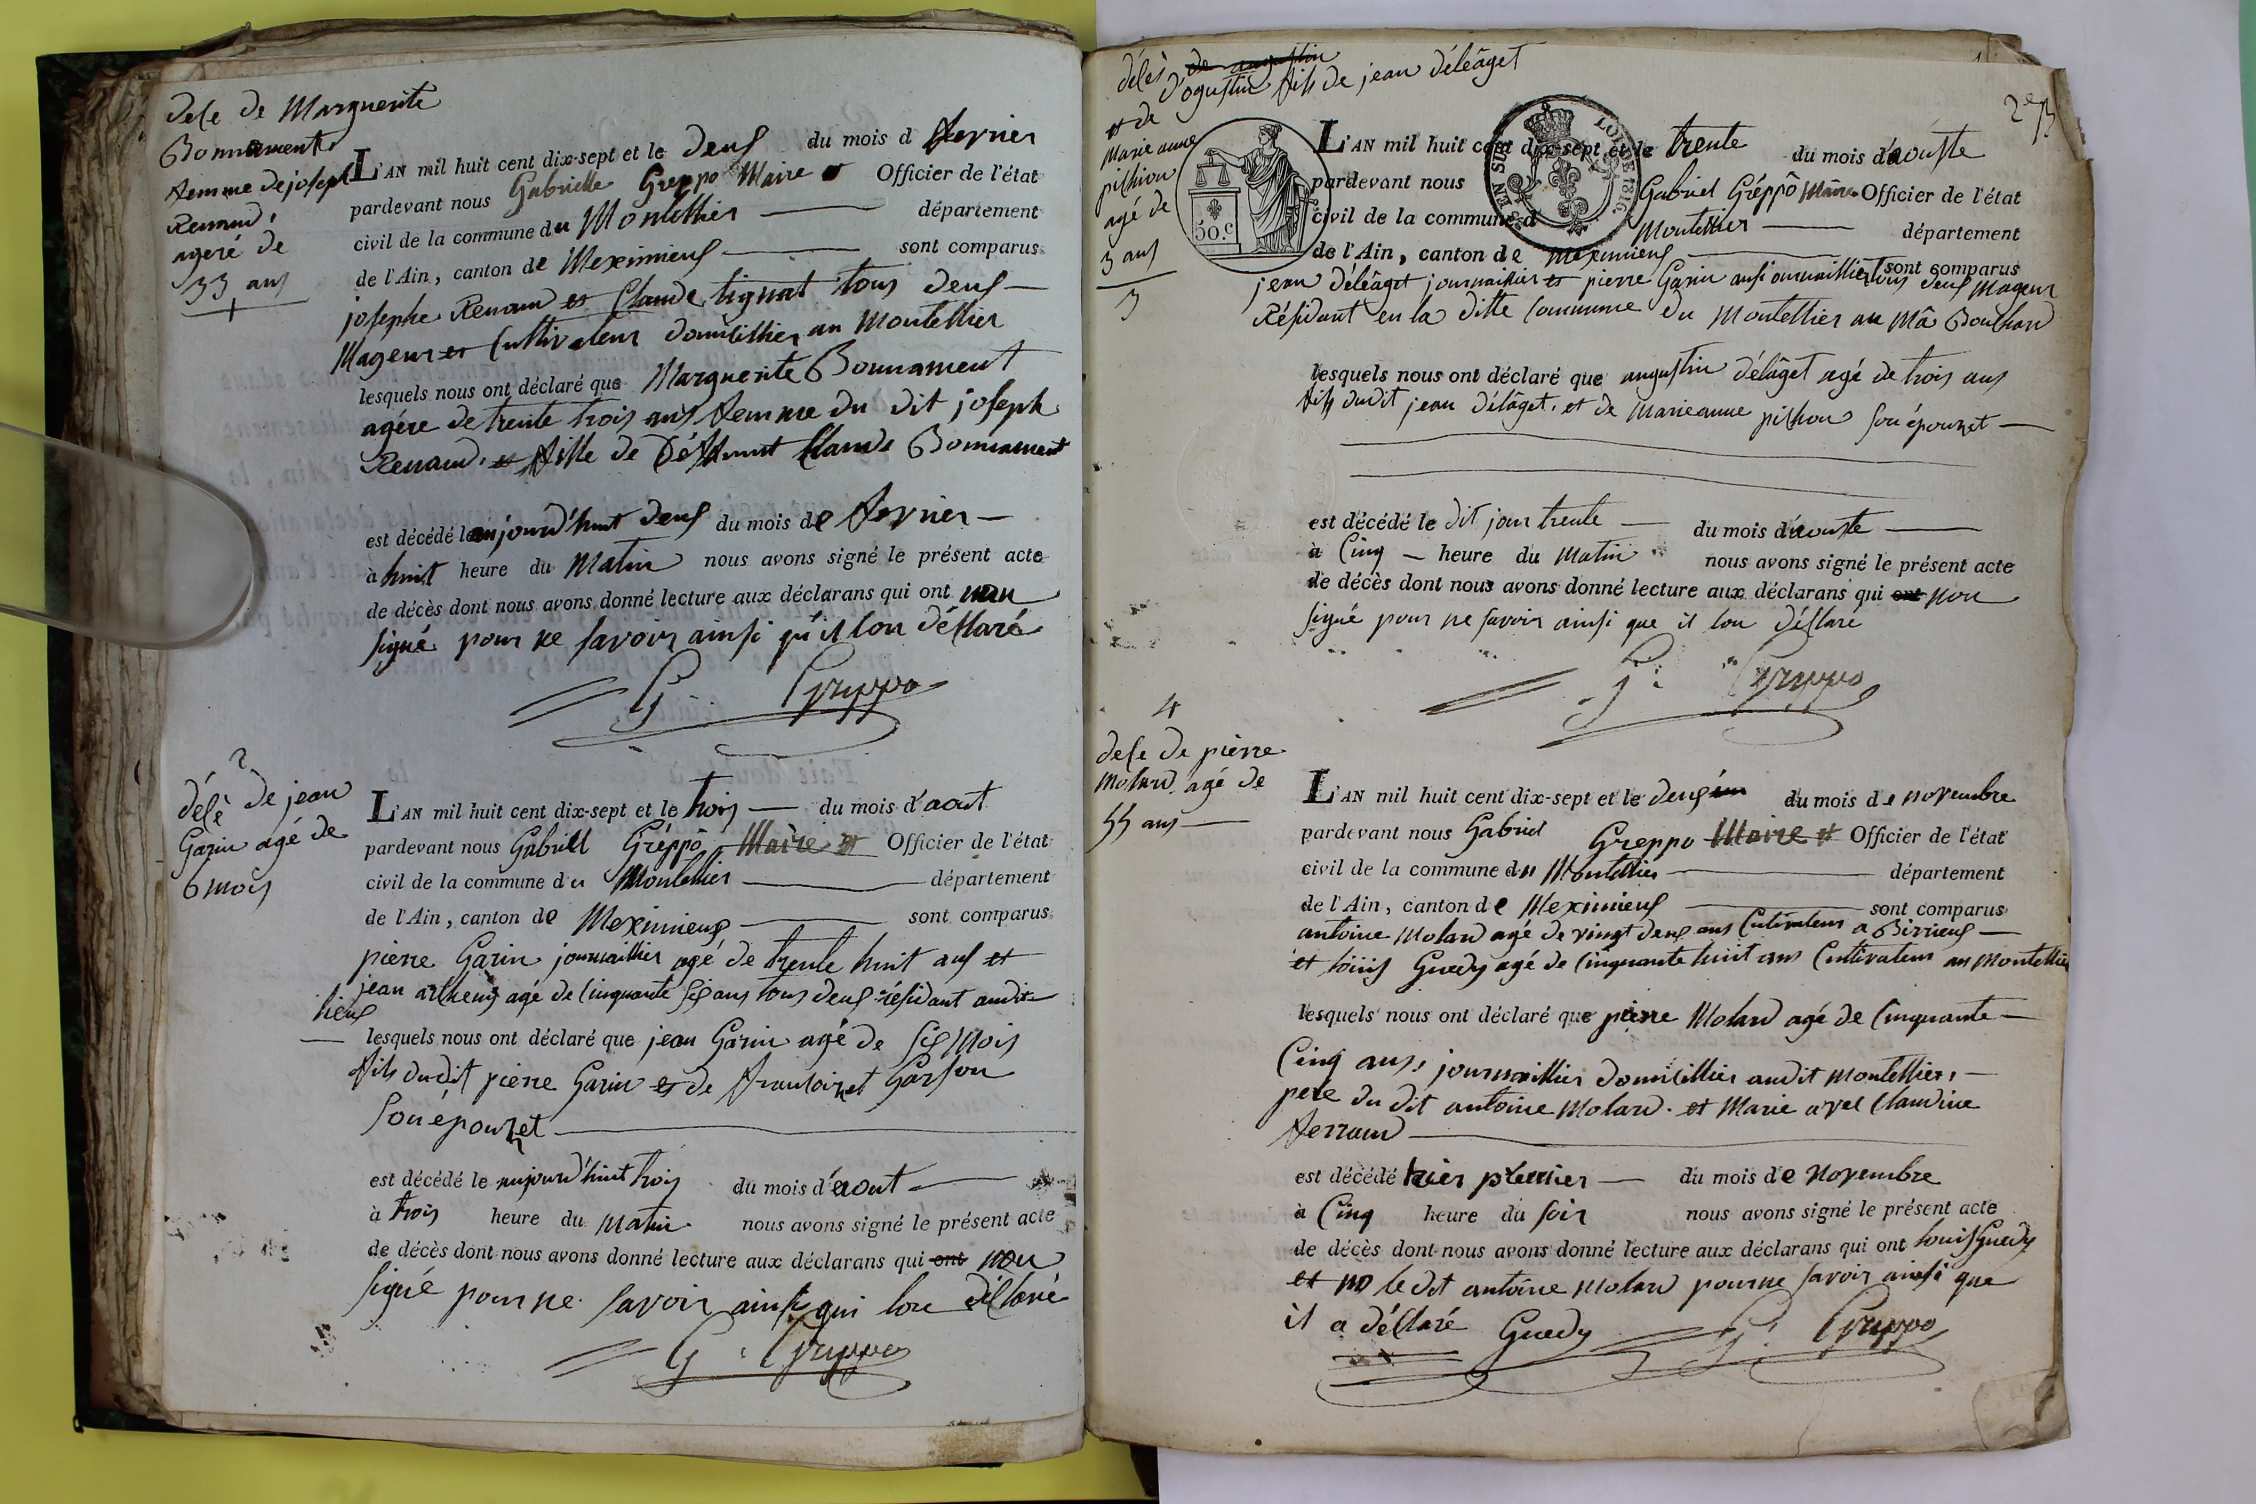 dece de Marguerite
Bonnament
femme de joseph
Renaud,
ageré de
33 ans
1
L'AN mil huit cent dix-sept et le deus du mois d fevrier
pardevant nous Gabrielle Greppo Maire et Officier de l'état
civil de la commune du Montellier département
de l'Ain, canton de Meximieus sont comparus
josephe Renaud et Claude tignat tous deus
Mageurs et Cultivateur domicillier au Montellier
lesquels nous ont déclaré que Marguerite Bonnament
agére de trente trois ans femme du dit joseph
Renaud. et fille de Déffunt Claude Bonnament
est décédé le aujourd'huit deus du mois de fevrier
à huit heure du Matin nous avons signé le présent acte
de décès dont nous avons donné lecture aux déclarans qui ont non
signé pour ne savoir ainsi qu'il lon décllaré
G. Greppo
2
décè de jean
Garin agé de
6 mois
L'AN mil huit cent dix-sept et le trois du mois d'aout
pardevant nous Gabriel Gréppô Maire et Officier de l'état
civil de la commune du Montellier département
de l'Ain, canton de Meximieus sont comparus
pierre Garin journaillier agé de trente huit ans et
jean agé de Cinquante six ans tous deus résidant audit
lieus
lesquels nous ont déclaré que jean Garin agé de six Mois
fils dudit pierre Garin et de françoiset Garson
son épouzet
est décédé le aujourd'huit trois du mois d'aout
à trois heure du matin nous avons signé le présent acte
de décès dont nous avons donné lecture aux déclarans qui ont non
signé pour ne savoir ainsi qui lon décllaré
G. Greppo
décès de augustin
d'ogustin fils de jean délêaget
et de
Marie anne
pilhion
agé de
3 ans
3
2e
50.c
EN SUS
LOI DE 1816
L'AN mil huit cent dix-sept et le trente du mois d'aouste
pardevant nous Gabriel Gréppô Maire Officier de l'état
civil de la commune d Montellier département
de l'Ain, canton de Meximieus sont comparus
jean délêaget journaillier et pierre Garin aussi journaillier tous deus Mageur
Résidant en la ditte Commune du Montellier au Mâ Bouchard
lesquels nous ont déclaré que augustin délâget agé de trois ans
fils dudit jean délâget. et de Marieanne pilhon son épouzet
est décédé le dit jour trente du mois d'aouste
à Cinq heure du Matin nous avons signé le présent acte
de décès dont nous avons donné lecture aux déclarans qui ont non
signé pour ne savoir ainsi que il lon décllare
G. Greppo
4
dece de pierre
Molard agé de
55 ans
L'AN mil huit cent dix-sept et le deus du mois de novembre
pardevant nous Gabriel Greppo Maire et Officier de l'état
civil de la commune du Montellier département
de l'Ain, canton de Meximieus sont comparus
antoine Molard agé de vingt deus ans Cultivateur a Birrieus
et louis Guedy agé de Cinquante huit ans Cultivateur au Montellier
lesquels nous ont déclaré que pierre Molard agé de Cinquante
Cinq ans, journaillier domicillier audit Montellier,
pere du dit antoine Molard. et Marie avec Claudine
ferrand
est décédé hier premier du mois de novembre
à Cinq heure du soir nous avons signé le présent acte
de décès dont nous avons donné lecture aux déclarans qui ont louis Guedy
et no le dit antoine Molard pour ne savoir ainsi que
il a décllaré Guedy G. Greppo